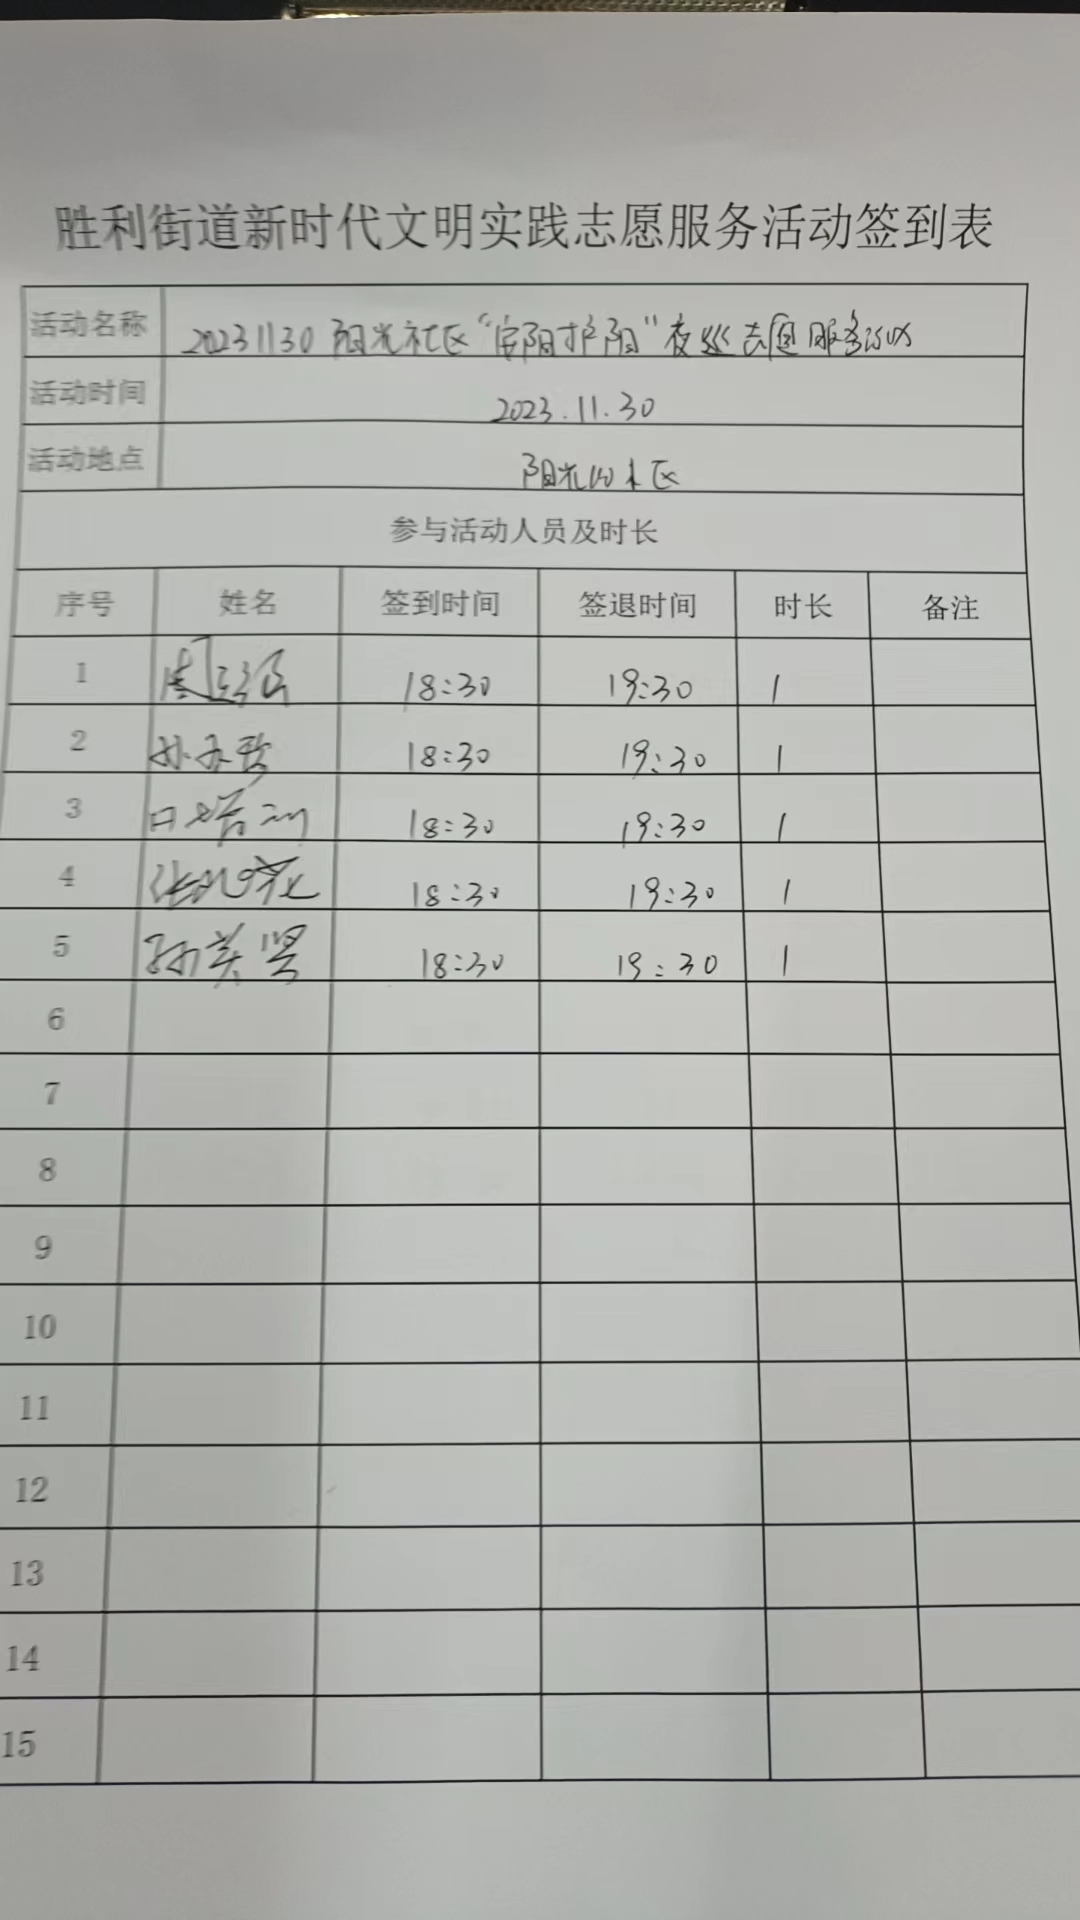 胜利街道新时代文明实践志愿服务活动签到表
活动名称 20231130 阳光社区“安阳护阳”夜巡志愿服务活动
活动时间 2023.11.30
活动地点 阳光社区
参与活动人员及时长
序号 姓名 签到时间 签退时间 时长 备注
1 18:30 19:30 1
2 18:30 19:30 1
3 18:30 19:30 1
4 18:30 19:30 1
5 孙美贤 18:30 19:30 1
6
7
8
9
10
11
12
13
14
15